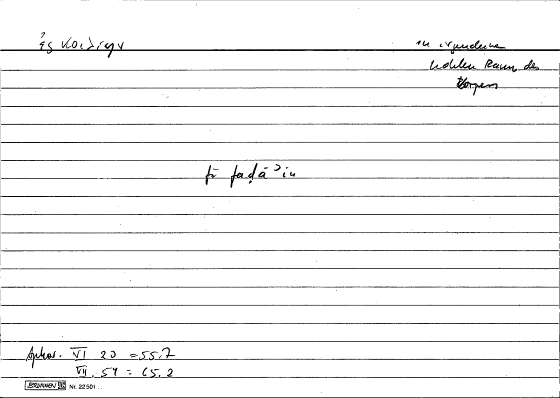 ἐς κοιλίην
in irgendeine
hohlen Raum des
Körpers
fī faḍāʾin
Aphor. VI 20 = 55.7
VII. 54 = 65.2
BRUNNEN Nr. 22501